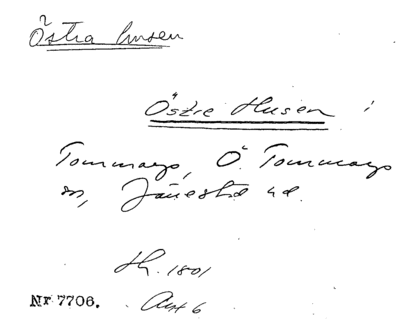 Östra Husen
Östre Husen i
Tommarps, Ö. Tommarps
sn, Järrestad hd.
Sk. 1801
Nr 7706. Akt 6